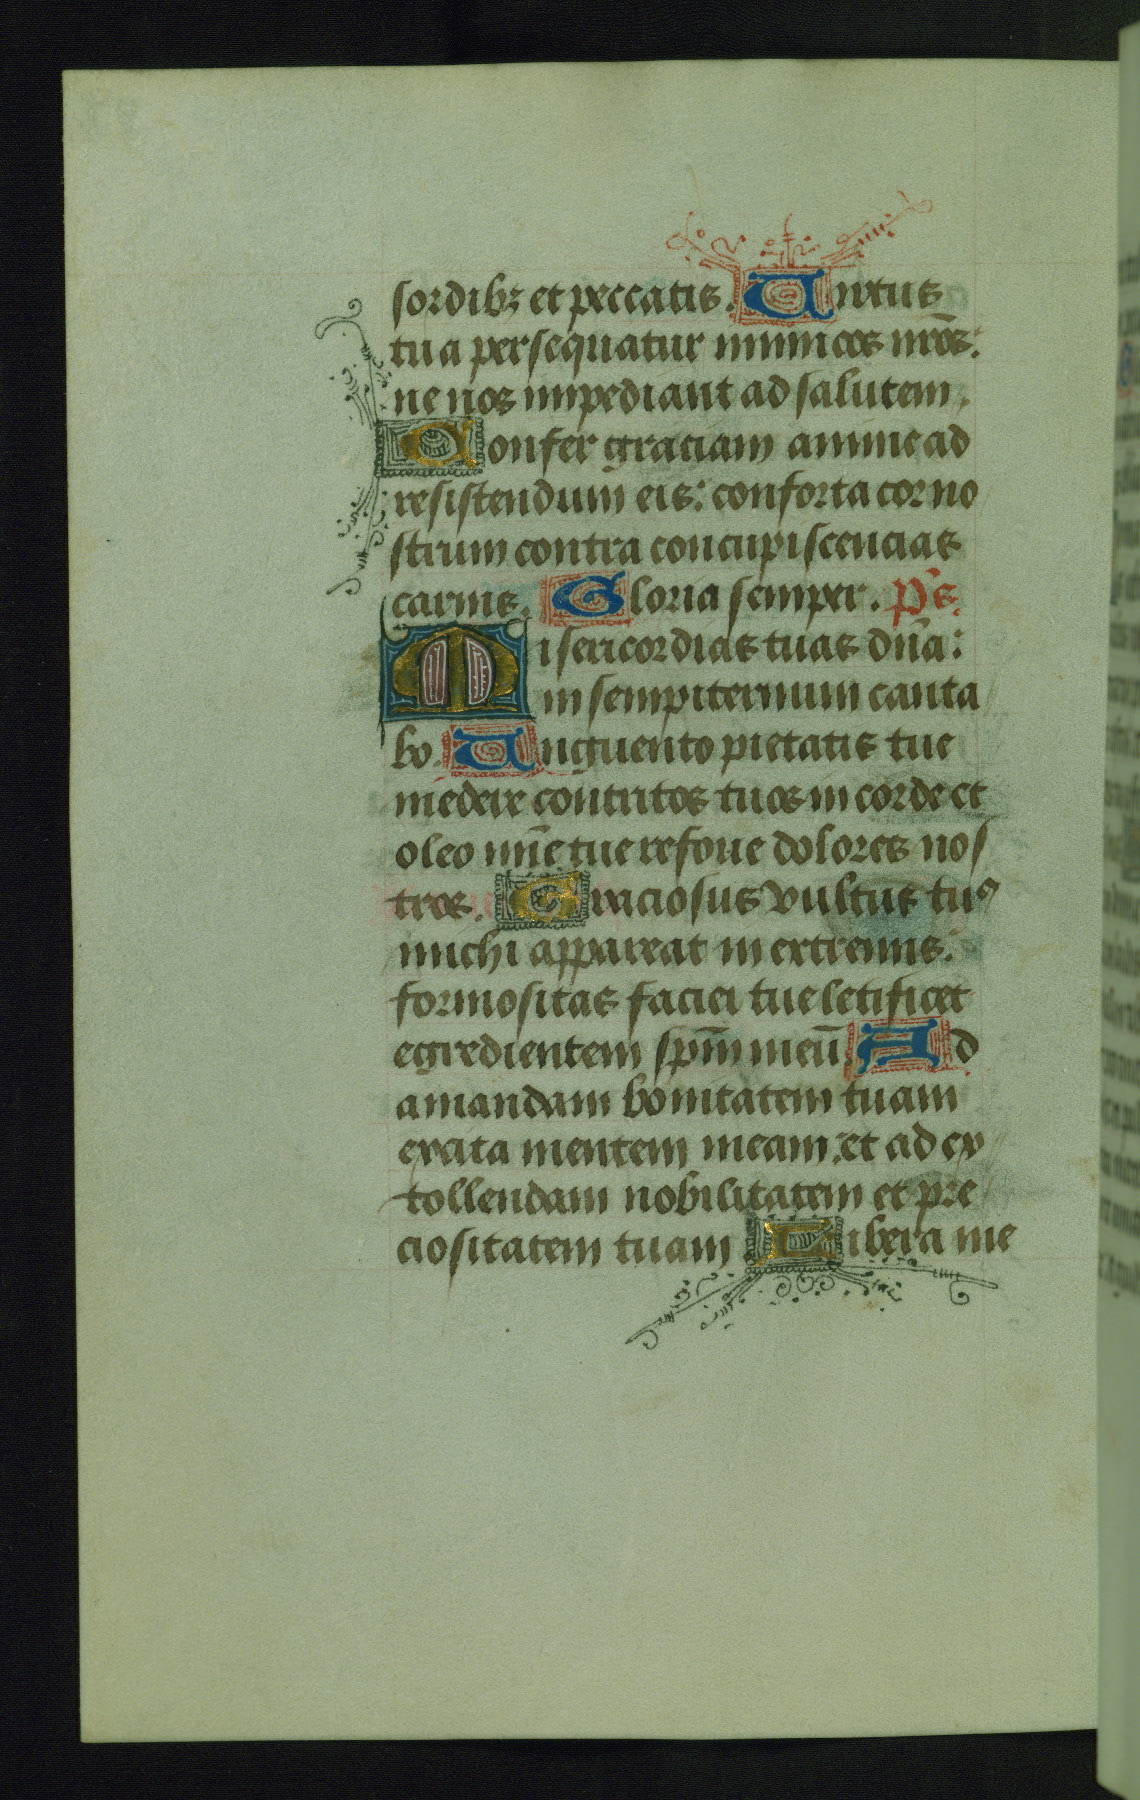 sordibꝫ et peccatis. Virtus
tua persequatur inimicos nr̄os:
ne nos impediant ad salutem.
Confer graciam anime ad
resistendum eis: conforta cor no
strum contra concupiscencias
carnis. Gloria semper. Ps̄.
Misericordias tuas dn̄a:
in sempiternum canta
bo. Unguento pietatis tue
medere contritos tuos in corde et
oleo mīe tue refoue dolores nos
tros. Graciosus vultus tuꝰ
michi appareat in extremis:
formositas faciei tue letificet
egredientem sp̄m meū. Ad
amandam bonitatem tuam
excita mentem meam: et ad ex
tollendam nobilitatem et pre
ciositatem tuam Libera me